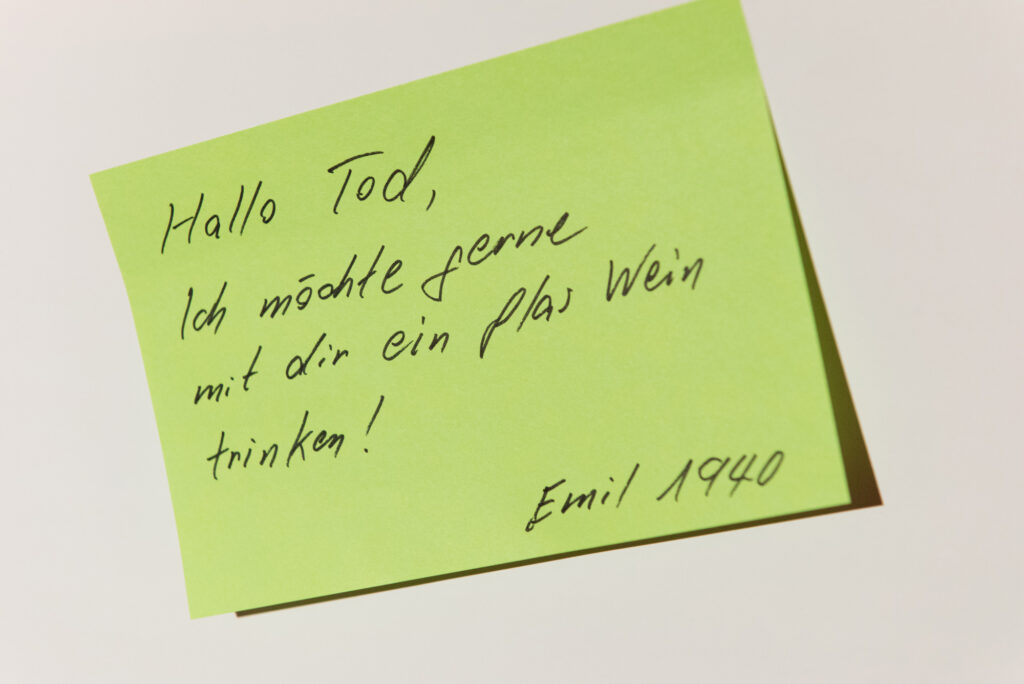 Hallo Tod,
Ich möchte gerne
mit dir ein Glas Wein
trinken!
Emil 1940